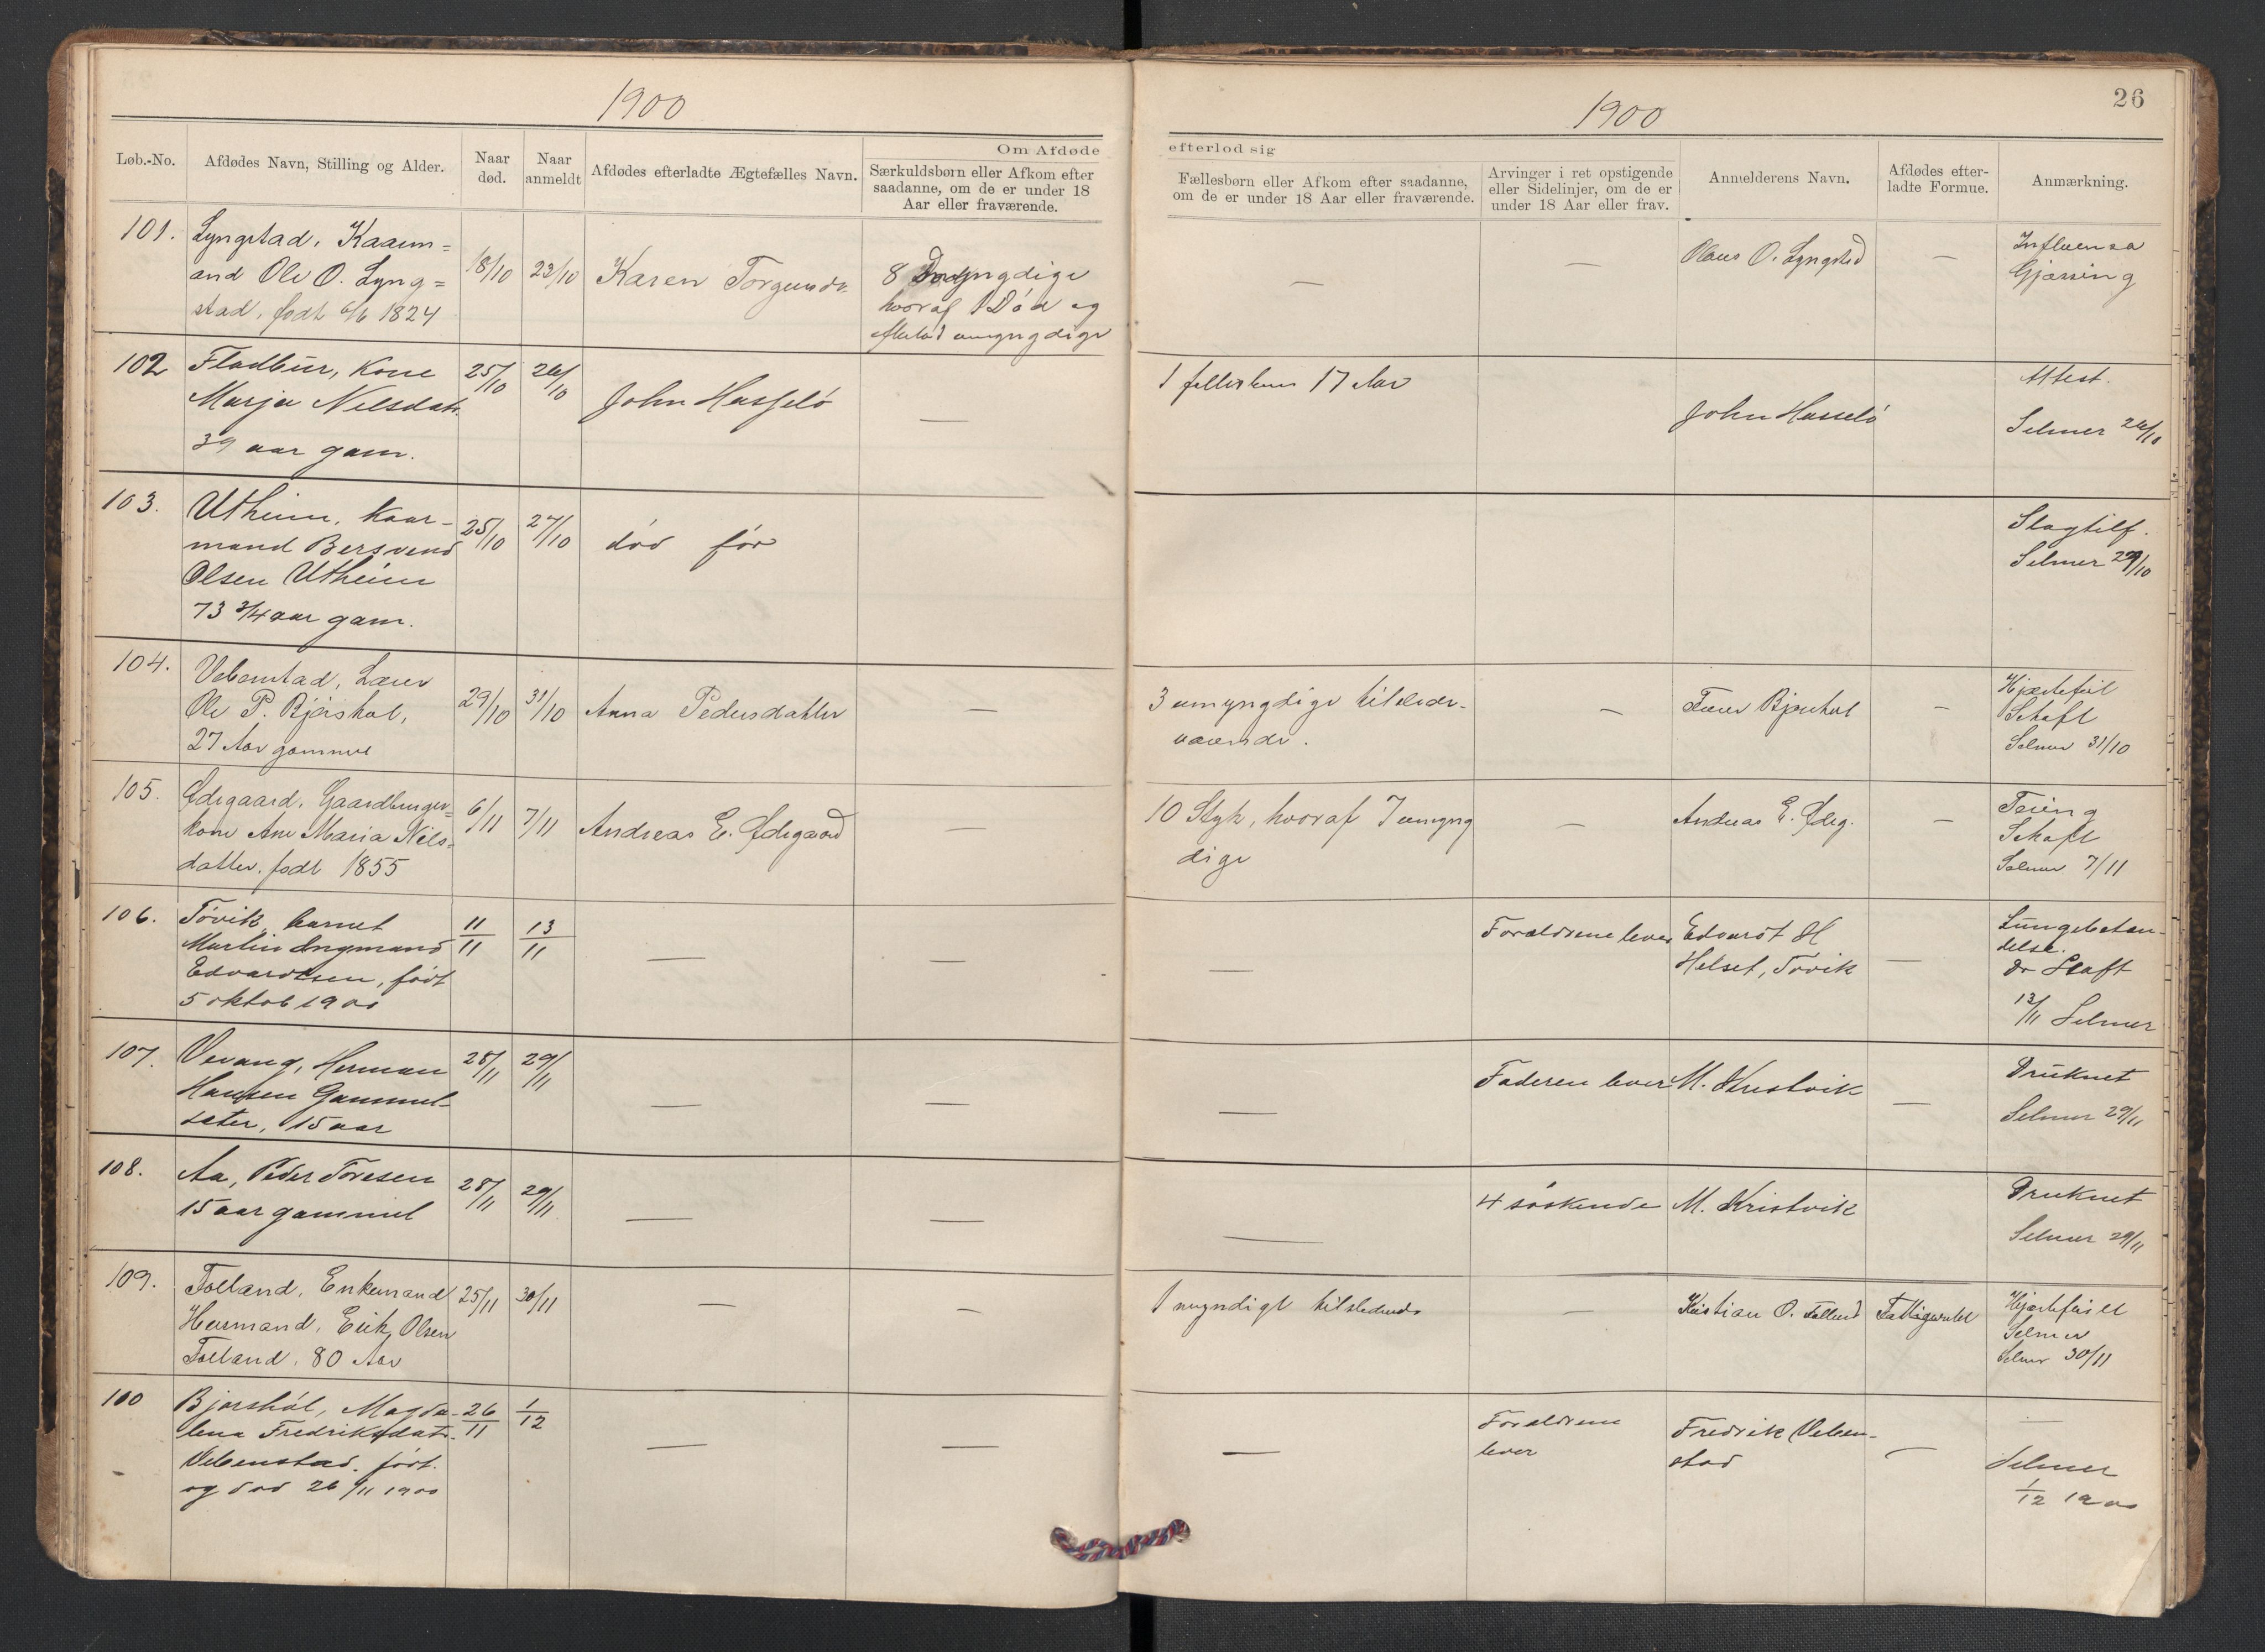 1900
Løb.-No.
Afdødes Navn, Stilling og Alder.
Naar død.
Naar anmeldt
Om Afdøde
Afdødes efterladte Ægtefælles Navn.
Særkuldsbørn eller Afkom efter
saadanne, om de er under 18
Aar eller fraværende.
1900
26
efterlod sig
Fællesbørn eller Afkom efter saadanne,
om de er under 18 Aar eller fraværende.
Arvinger i ret opstigende
eller Sidelinjer, om de er
under 18 Aar eller frav.
Anmelderens Navn.
Afdødes efter-
ladte Formue.
Anmærkning.
101.
Lyngstad, Kaarm=
and Ole O. Lyng=
stad, født 6/6 1824
18/10
23/10
Karen Torgensdr
8
hvoraf 1 Død og
umyngdige
—
—
Olaus O. Lyngstad
—
Influensa
Gjørsing
102
Fladbur, Kone
Marja Nelsdatr.
39 aar gam.
25/10
26/10
John Hasselø
—
1 17 Aar
John Hasselø
Attest.
Selmer 26/10
103.
Utheim, Kaar-
mand Bersvend
Olsen Utheim
73 3/4 aar gam.
25/10
27/10
død før
Slagtilf.
Selmer 29/10
104.
Vebenstad, Løser
Ole P. Bjørshol,
27 Aar gammel
29/10
31/10
Anna Pedersdatter
—
3 umyngdige tilstede-
værende.
—
Bjørshol
—
Hjertefeil
Schaft
Selmer 31/10
105.
Ødegaard, Gaardbruger-
kone Ane Maria Nils-
datter, født 1855
6/11
7/11
Andreas E. Ødegaard
—
10 Styk, hvoraf 7 umyng
dige
—
Andreas E. Ødeg.
—
Tæring
Schaft
Selmer 7/11
106.
Tøvik, barnet
Martin Ingmand
Edvardsen, født
5 oktob 1900
11/11
13/11
—
—
—
Forældrene lever
Edvardt H
Helset, Tøvik
—
Lungebetæn-
delse.
dr Skaft
13/11 Selmer
107.
Vevang, Herman
Hansen Gammel-
sæter, 15 aar
28/11
29/11
—
—
—
Faderen lever
M. Kristvik
—
Druknet
Selmer 29/11
108.
Aa, Peder Toresen
15 aar gammel
28/11
29/11
—
—
—
4 søskende
M. Kristvik
Druknet
Selmer 29/11
109.
Folland, Enkemand
Husmand, Erik Olsen
Folland, 80 Aar
25/11
30/11
—
—
1 myndigt tilstedevde
—
Kristian O. Folland
Fattigunder
Hjertefeil
Selmer
Selmer 30/11
100
Bjørshol, Magda-
lena Fredriksdatr.
Vebenstad, født.
og død 26/11 1900
26/11
1/12
—
—
—
Forældrene
lever
Fredrik Veben-
stad
—
—
Selmer
1/12 1900